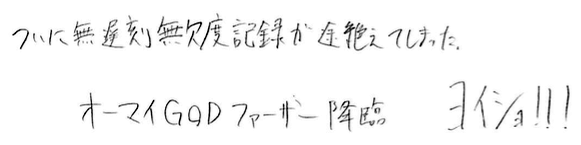 ついに無遅刻無欠度記録が途絶えてしまった。
オーマイGODファーザー降臨 ヨイショ!!!